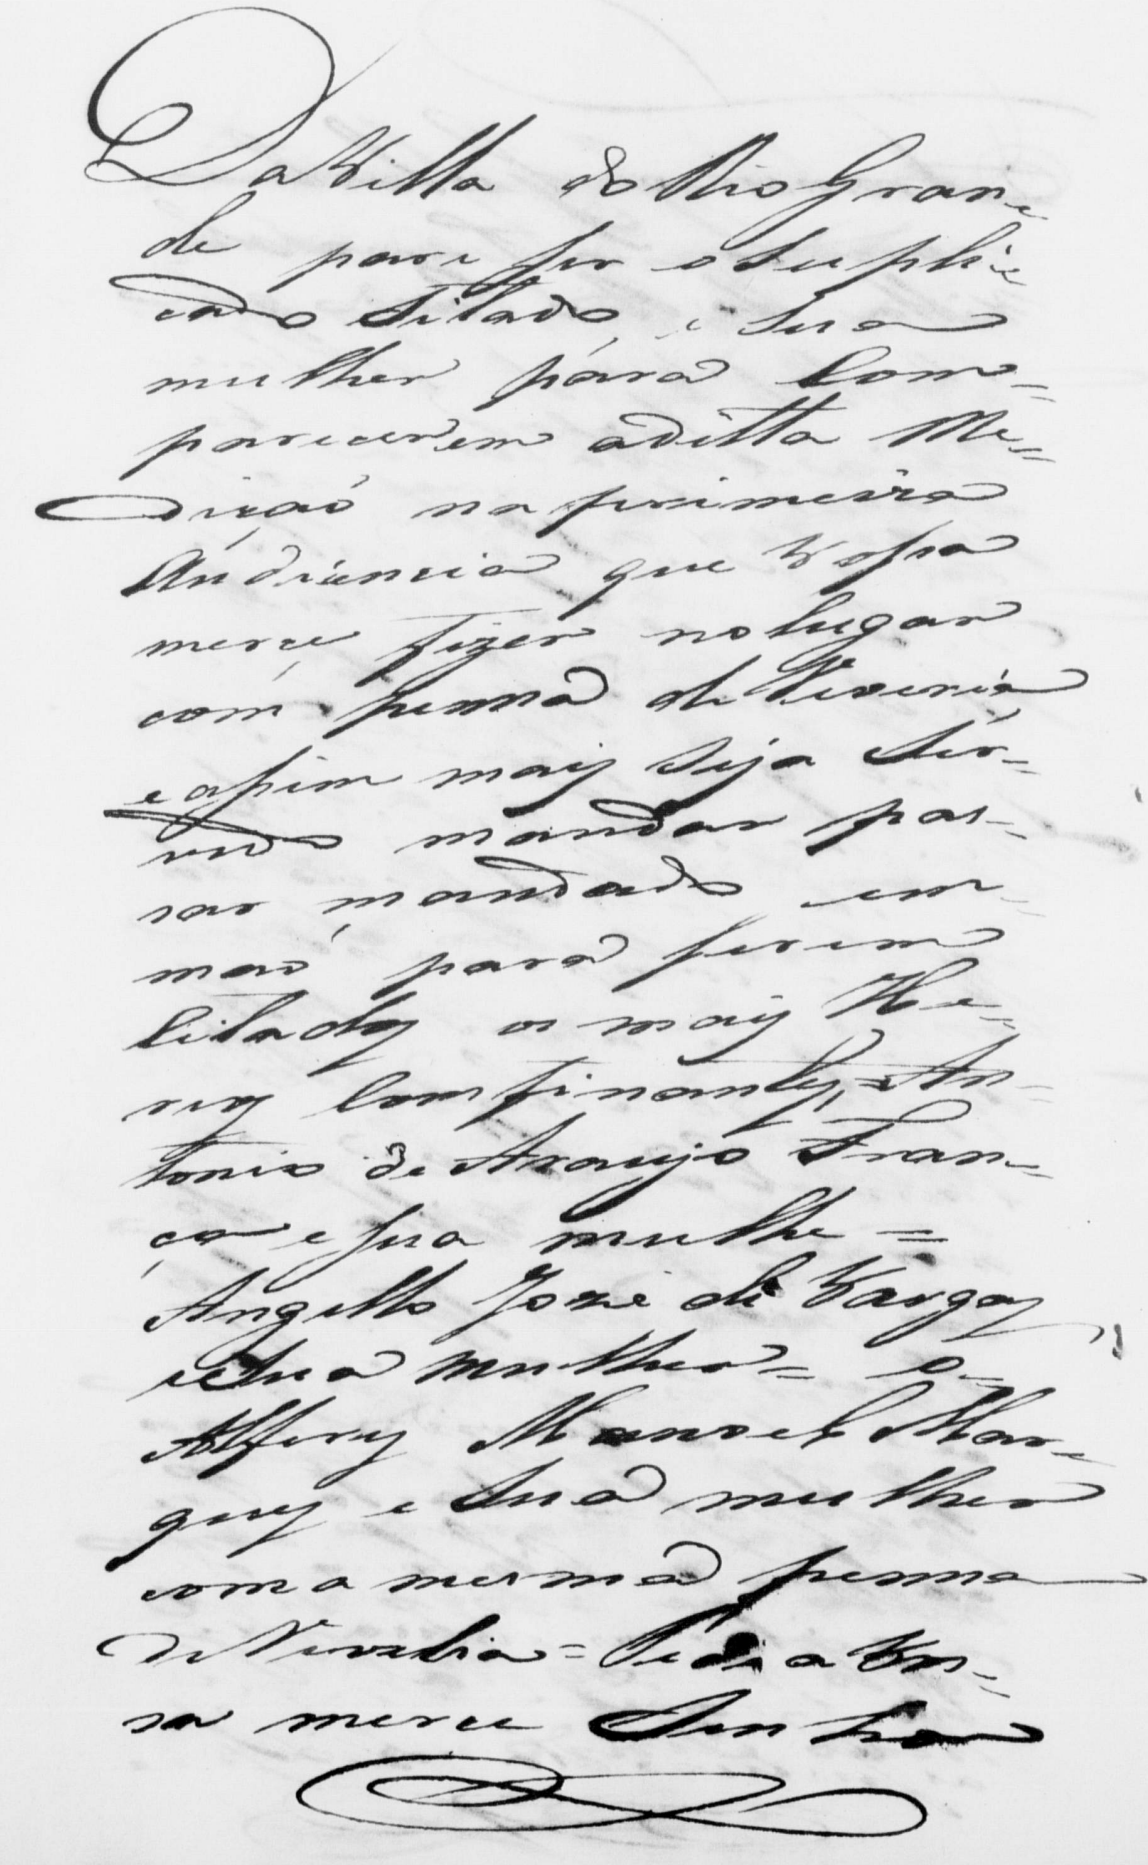 Da Villa do Rio Gran=
de para ser o Supli=
cado Sitado, e Sua
mulher para Com=
parecerem aditta Me=
dição na primeira
Audiencia que Vossa
merce fizer no lugar
com penna de Reveria
e assim mais Seja Ser=
vido mandar pas=
sar mandado em
maõ para serem
Citados os mais He=
reos Comfinantes, An=
tonio de Araujo Fran=
ça e sua mulhe =
Angello Joze de Vargas
e Sua mulher = o
Alferes Manoel Mar=
ques e Sua mulher
com a mesma penna
de Revelia = Pede a Vos=
sa merce Senhor